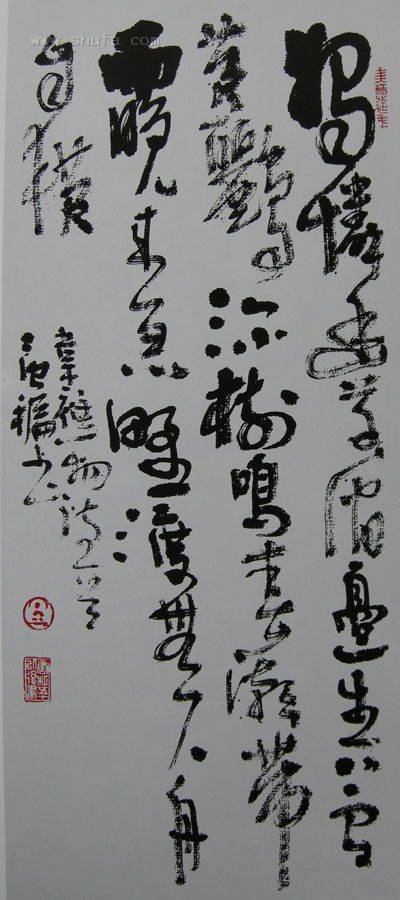 www.shufa.com
獨憐幽草澗邊生上有
黃鸝深樹鳴春潮帶
雨晚來急野渡無人舟
自橫
韋應物詩一首